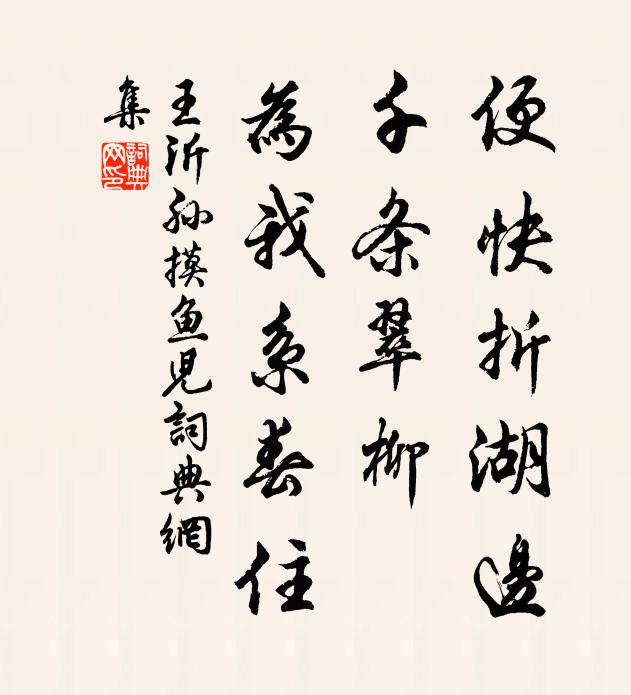 便快折湖邊
千条翠柳
為我系春住
王沂孙摸魚児詞典網
集
詞典網印